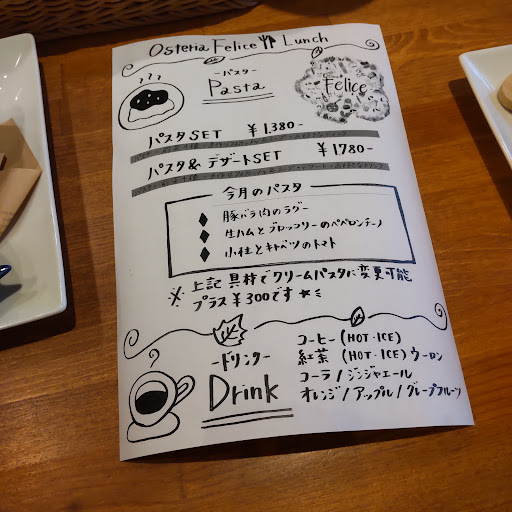 Osteria Felice Lunch
-パスタ-
Pasta
Felice
パスタSET ¥1.380-
パスタ& デザートSET ¥1780-
今月のパスタ
豚バラ肉のラグー
生ハムとブロッコリーのペペロンチーノ
小柱とキャベツのトマト
※ 上記 具材でクリームパスタに変更可能
プラス¥300です
-ドリンク-
Drink
コーヒー (HOT・ICE)
紅茶 (HOT・ICE) ウーロン
コーラ / ジンジャエール
オレンジ / アップル / グレープフルーツ